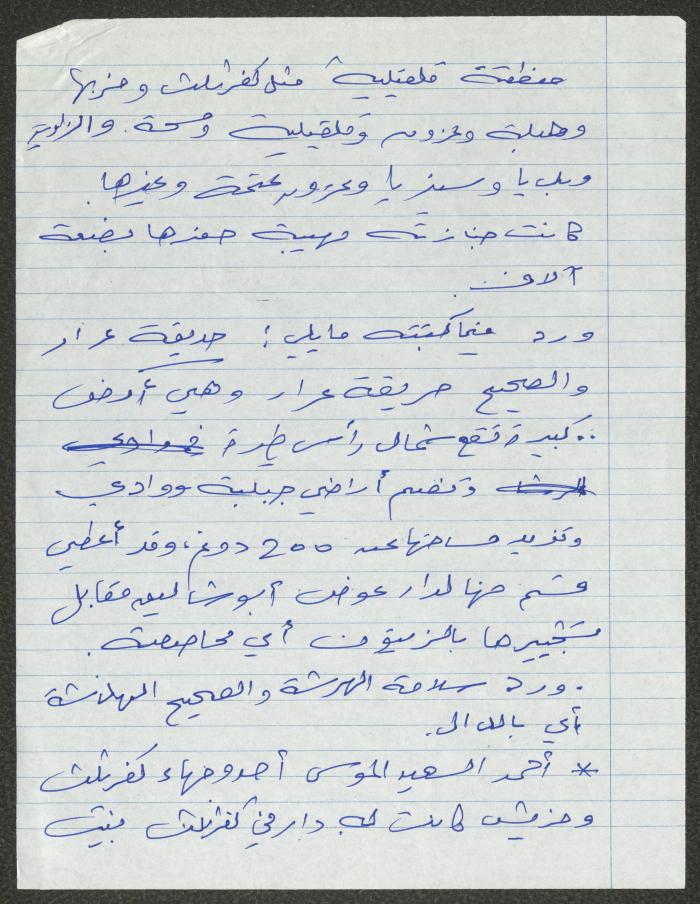 منطقة قلقيلية مثل كفر ثلث وخربها
وحبلة وعزون وقلقيلية ومسحة والزاوية
وبديا وسنيريا وعزون عتمة وغيرها.
كانت جنازته مهيبة حضرها بضعة
آلاف.
ورد فيما كتبته مايلي: حديقة عرار
والصحيح حريقة عرار وهي أرض
كبيرة تقع شمال رأس طيرة
وتضم أراضي جبلية ووادي
وتزيد مساحتها عن 200 دونم، وقد أعطي
قسم منها لدار عوض أبو شاليه مقابل
تشجيرها بالزيتون أي محاصصة.
. ورد سلامة الهرشة والصحيح
أي بالدال.
* أحمد السعيد الموسى أحد وجهاء كفر ثلث
وخريش كانت له دار في كفر ثلث بنيت